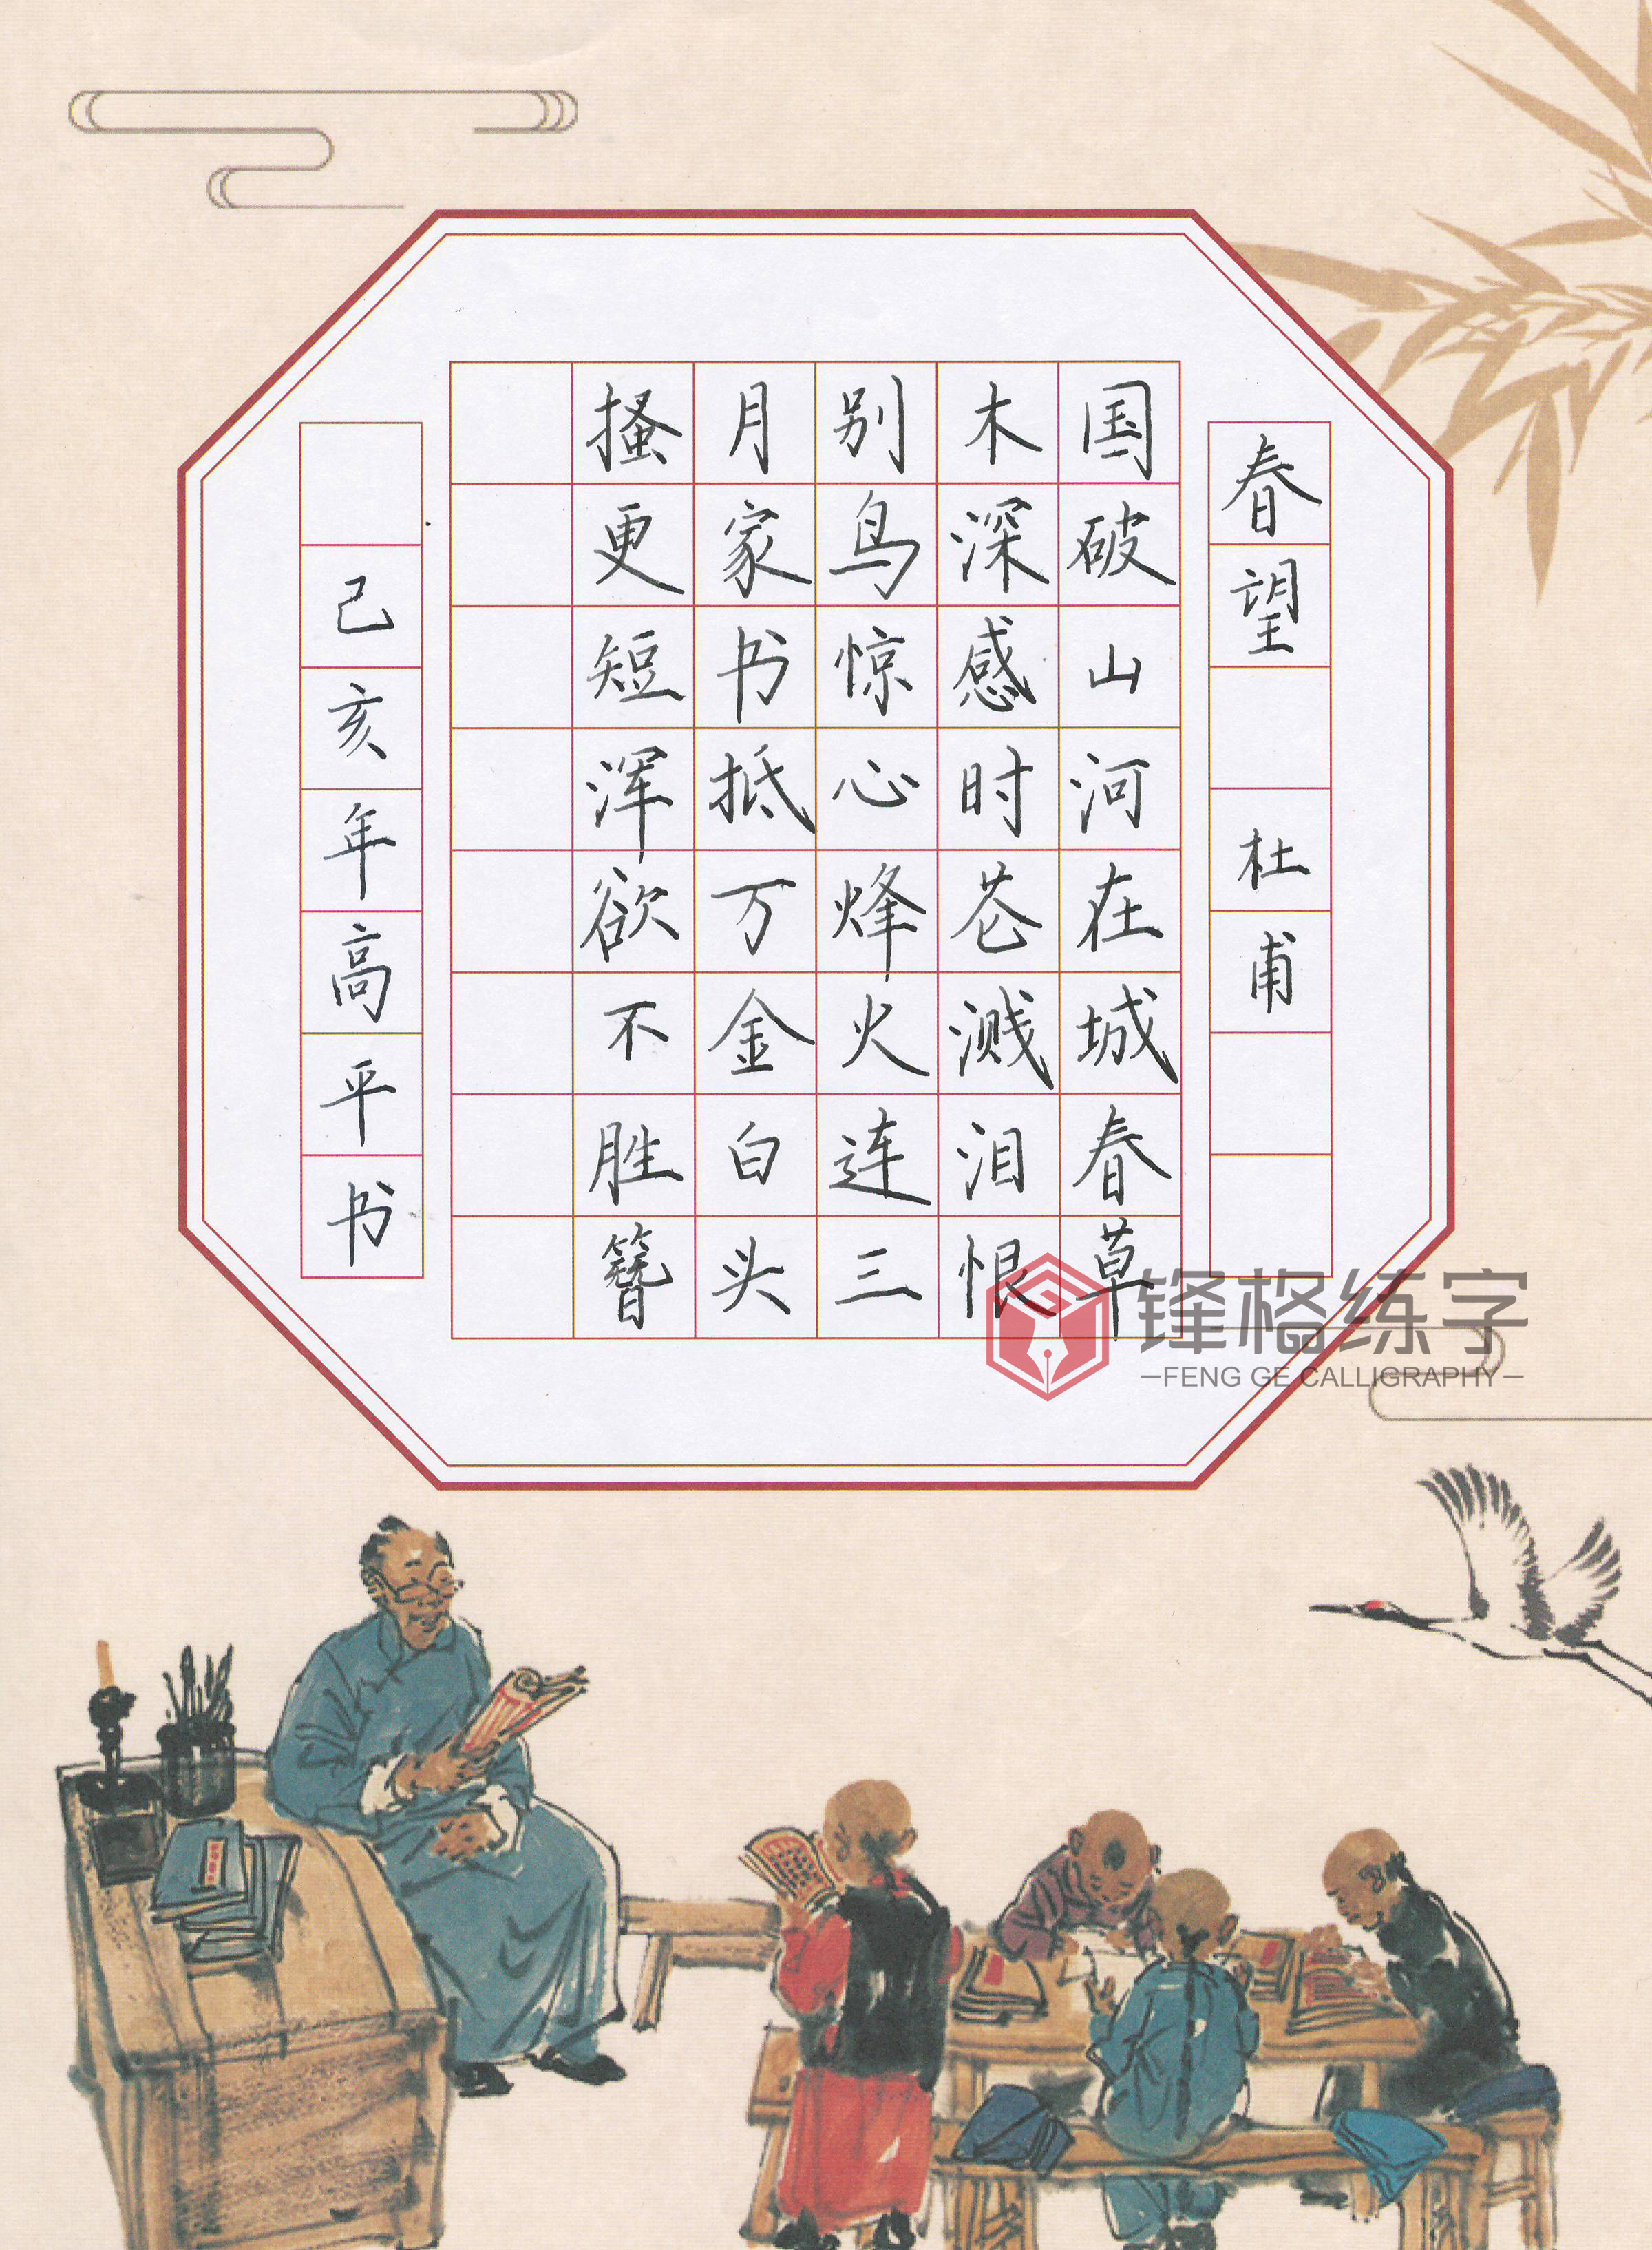 春望 杜甫
国破山河在城春草
木深感时花溅泪恨
别鸟惊心烽火连三
月家书抵万金白头
搔更短浑欲不胜簪
己亥年高平书
锋格练字
FENG GE CALLIGRAPHY